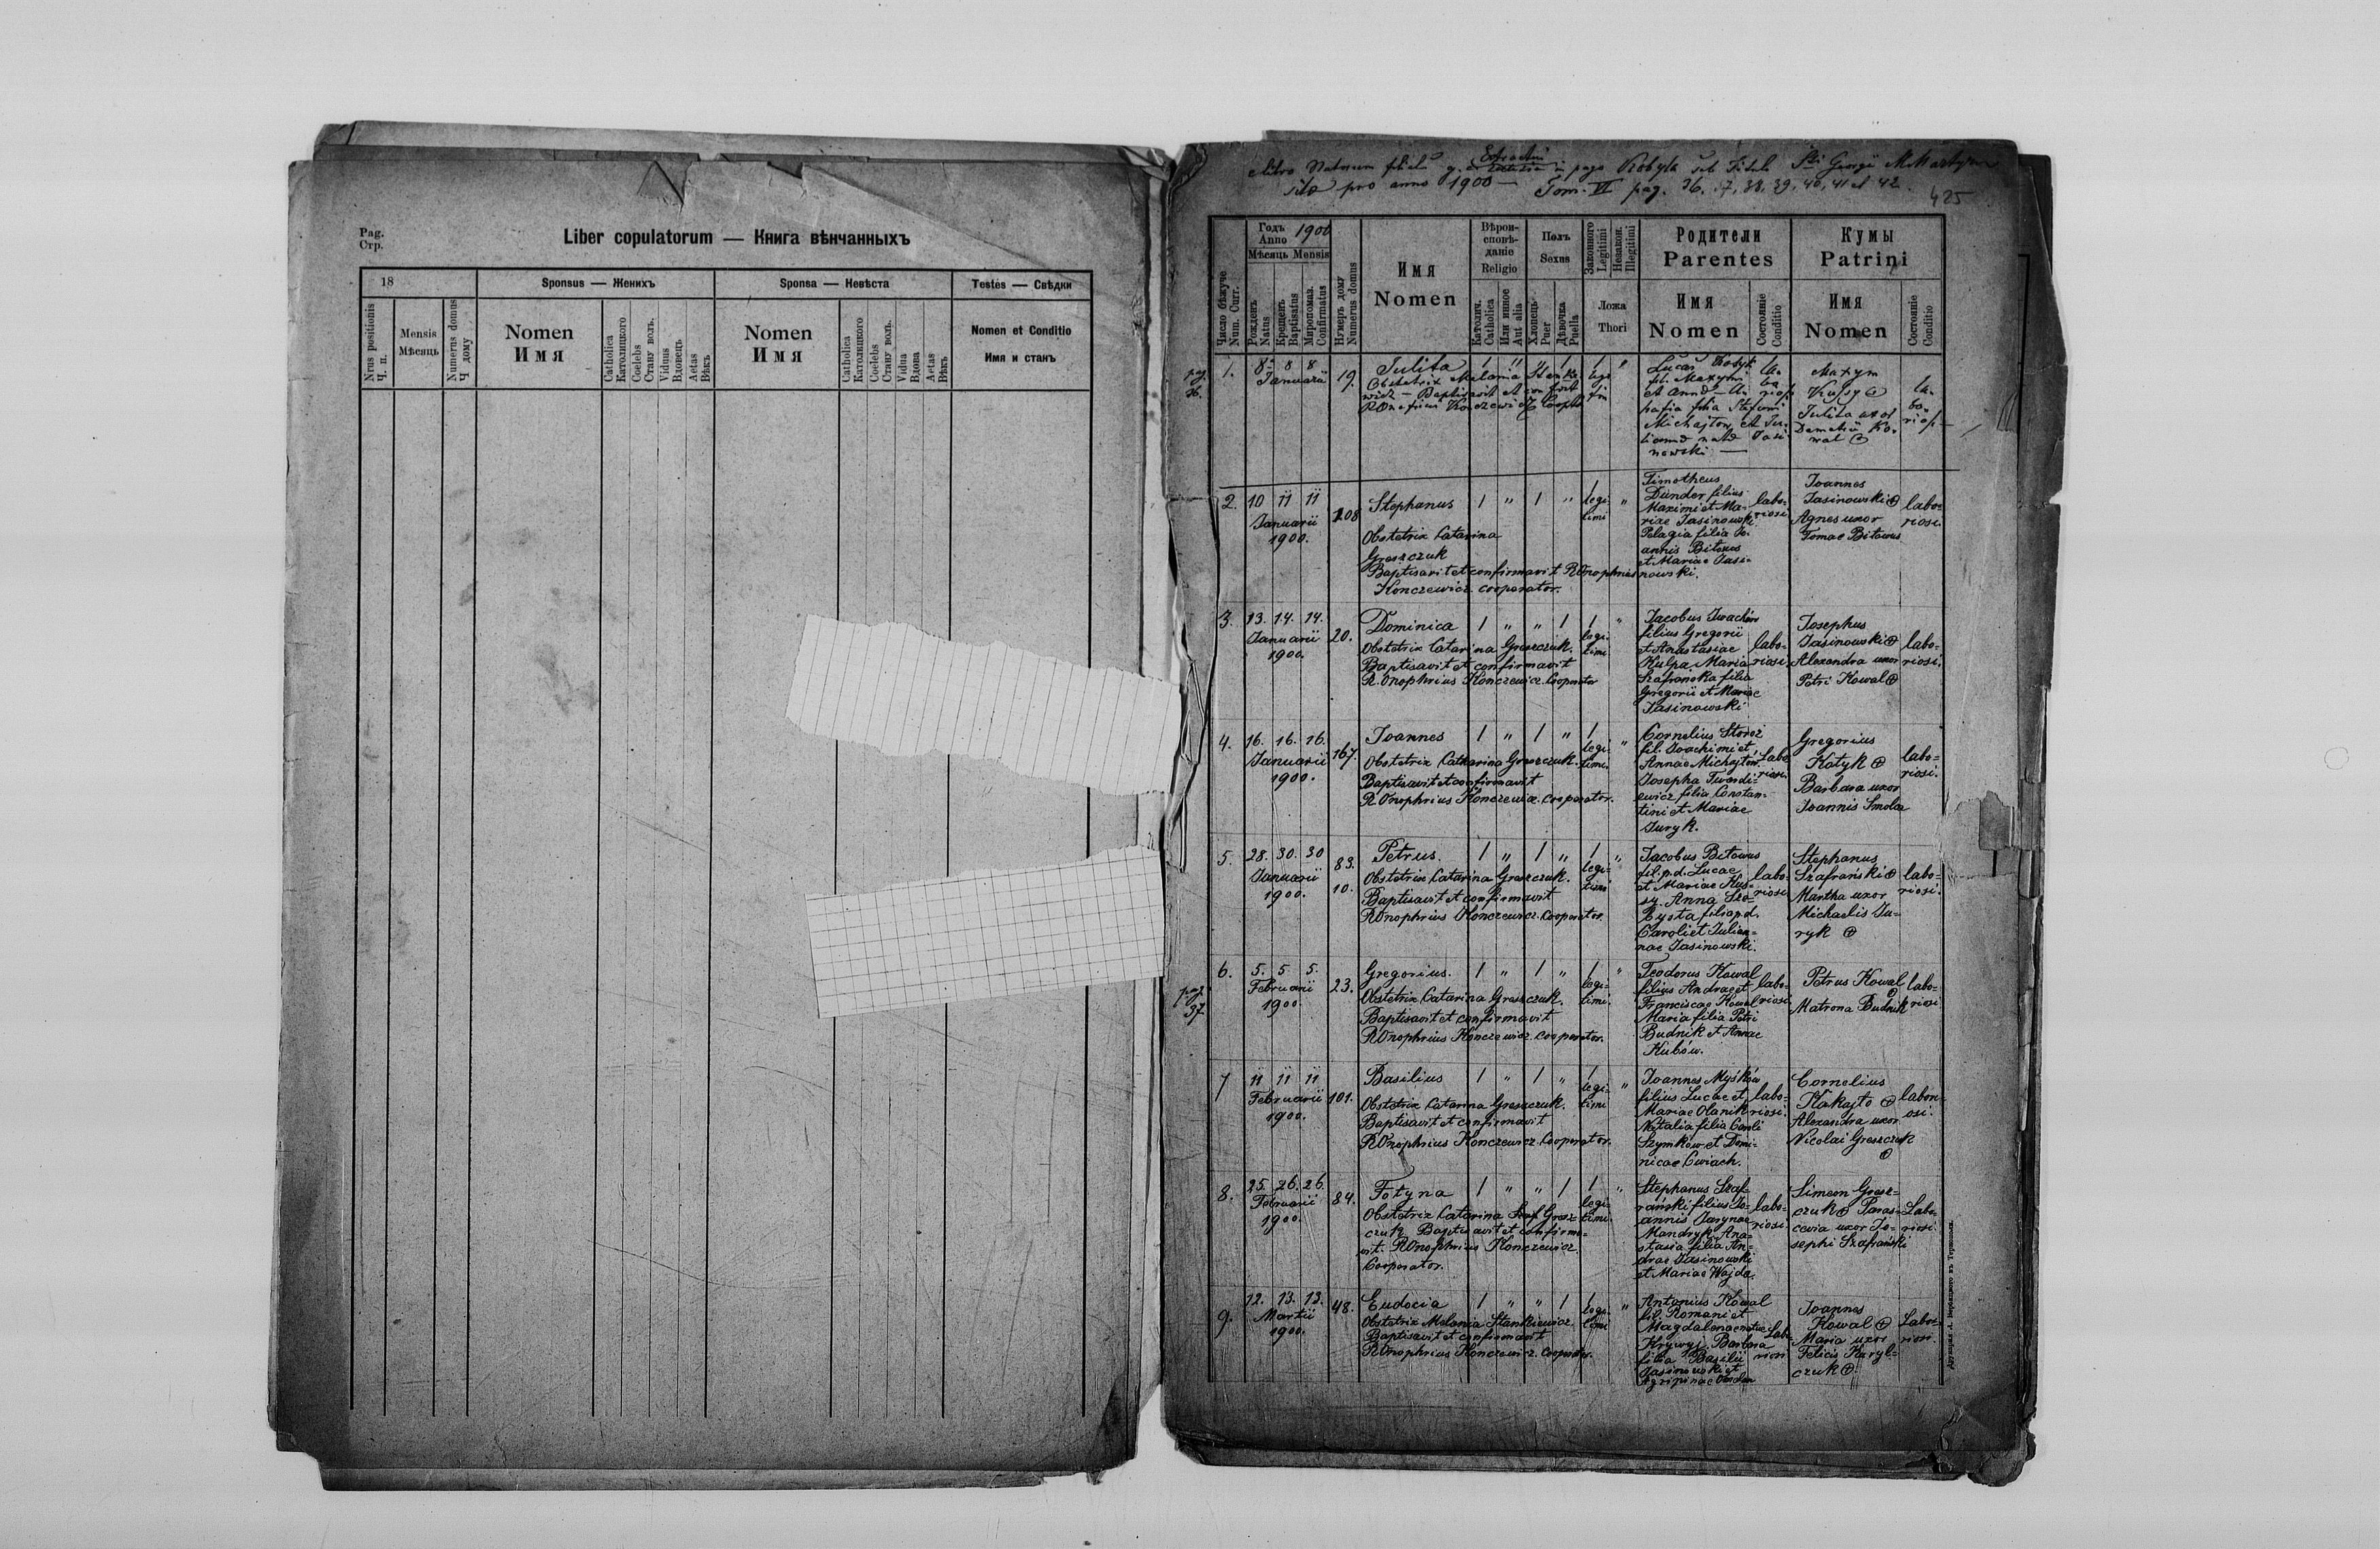 Pag.
Стр.
Liber copulatorum — Книга вѣнчанныхъ
18
Sponsus — Женихъ
Sponsa — Невѣста
Testes — Свѣдки
Nrus positionis
Ч. п.
Mensis
Мѣсяць
Numerus domus
Ч дому
Nomen
Имя
Catholica
Католицкого
Coelebs
Стану вол.
Viduus
Вдовець
Aetas
Вѣкъ
Nomen
Имя
Catholica
Католицкого
Coelebs
Стану воль.
Vidua
Вдова
Aetas
Вѣкъ
Nomen et Conditio
Имя и станъ
Natorum
in pago Kobyla sub Titulo Sti Georgii M. Martyris
pro anno 1900 — Tom. VI pag. 36. 38. 39. 40. 41 et 42.
425
Число бѣжуче
Num. Curr.
Годъ
Anno 1900
Мѣсяць Mensis
Рожденъ
Natus
Крещенъ
Baptisatus
Миропомаз.
Confirmatus
Нумеръ дому
Numerus domus
Имя
Nomen
Вѣрои-
сповѣ-
даніе
Religio
Католич.
Catholica
Или иное
Aut alia
Полъ
Sexus
Хлопець
Puer
Дѣвочка
Puella
Законного
Legitimi
Незакон.
Illegitimi
Ложа
Thori
Родители
Parentes
Имя
Nomen
Состояніе
Conditio
Кумы
Patrini
Имя
Nomen
Состояніе
Conditio
pag.
36.
1.
8 8 8
Januarii
19.
Julita
Obstetrix Melania Stankie
wicz — Baptisavit et confirm
R Konczewicz Coop
Lucas
fil. Maxymi
et Annae
filia Stefani
Michajlow et Ju-
natae Jasi-
nowski —
Maxym
Kulsy
Julita uxor
Demetrii Ko-
wal
2.
10 11 11
Januarii
1900.
108
Stephanus
Obstetrix Catarina
Greszczuk
Baptisavit et confirmavit R Onophrius
Konczewicz cooperator.
legi-
timi
Timotheus
Dunder filius
Maximi et Ma-
riae Jasinowski
Pelagia filia Jo-
annis Bitowus
et Mariae Jasi-
nowski.
labo-
riosi
Joannes
Jasinowski
Agnes uxor
Tomae Bitowus
labo-
riosi.
3.
13. 14. 14.
Januarii
1900.
20.
Dominica
Obstetrix Catarina Greszczuk.
Baptisavit et confirmavit
R. Onophrius Konczewicz. Cooperator
legi-
timi
Jacobus Iwachów
filius Gregorii
et Anastasiae
Kulpa, Maria
Szafranska filia
Gregorii et Mariae
Jasinowski
labo-
riosi
Josephus
Jasinowski
Alexandra uxor
Petri Kowal
labo-
riosi.
4.
16. 16. 16.
Januarii
1900.
167.
Joannes
Obstetrix Catharina Greszczuk.
Baptisavit et confirmavit
R Onophrius Konczewicz. cooperator.
legi-
timi.
Cornelius Storoż
fil. Joachimi et
Annae Michajlow
Josepha Twerdi-
ewicz filia Constan-
tini et Mariae
Juryk.
Labo-
riosi.
Gregorius
Kotyk
Barbara uxor
Joannis Smolae
labo-
riosi.
5.
28. 30. 30
Januarii
1900.
83.
10.
Petrus.
Obstetrix Catarina Greszczuk.
Baptisavit et confirmavit
R Onophrius Konczewicz. Cooperator.
legi-
timi
Jacobus Bitowus
fil. p. d. Lucae
et Mariae Kus-
sy. Anna Szo-
filia p. d.
Caroli et Julian-
nae Jasinowski.
labo-
riosi
Stephanus
Szafrański
Martha uxor
Michaelis Ju-
ryk
labo-
riosi.
pag.
37
6.
5. 5 5.
Februarii
1900.
23.
Gregorius.
Obstetrix Catarina Greszczuk.
Baptisavit et confirmavit
R Onophrius Konczewicz. cooperator.
legi-
timi.
Teodorus Kowal
filius Andreae et
Franciscae Kowal
Maria filia Petri
Budnik et Annae
Kubów.
labo-
riosi.
Petrus Kowal
Matrona Budnik
labo-
riosi
7
11 11 11
Februarii
1900.
101.
Basilius
Obstetrix Catarina Greszczuk.
Baptisavit et confirmavit
R Onophrius Konczewicz. Cooperator.
legi-
timi
Joannes Myśków
filius Lucae et
Mariae Olanik
Natalia filia Caroli
Szymków et Domi-
nicae Cwiach.
labo-
riosi.
Cornelius
Kakajło
Alexandra uxor
Nicolai Greszczuk
labori-
osi.
8.
25. 26. 26.
Februarii
1900.
84.
Fotyna
Obstetrix Catarina Gresz-
czuk. Baptisavit et confirma-
vit. R Onophrius Konczewicz
Cooperator.
legi-
timi.
Stephanus Szaf-
rański filius Jo-
annis Jarynae
Mandryk Ana-
stasia filia An-
dreae Jasinowski
et Mariae Wajda.
labo-
riosi
Simeon Gresz-
czuk Paras-
cevia uxor Jo-
sephi Szafrański
Labo-
riosi.
9.
12. 13. 13.
Martii
1900.
48.
Eudocia
Obstetrix Melania Stankiewicz.
Baptisavit et confirmavit
R Onophrius Konczewicz. Cooperator.
legi-
timi
Antonius Kowal
fil. Romani et
Magdalenae natae
Krywyj. Barbara
filia Basilii
Jasinowski et
Agripinae
Labo-
riosi
Joannes
Kowal
Maria uxor
Felicis Kuryl-
czuk
Labo-
riosi.